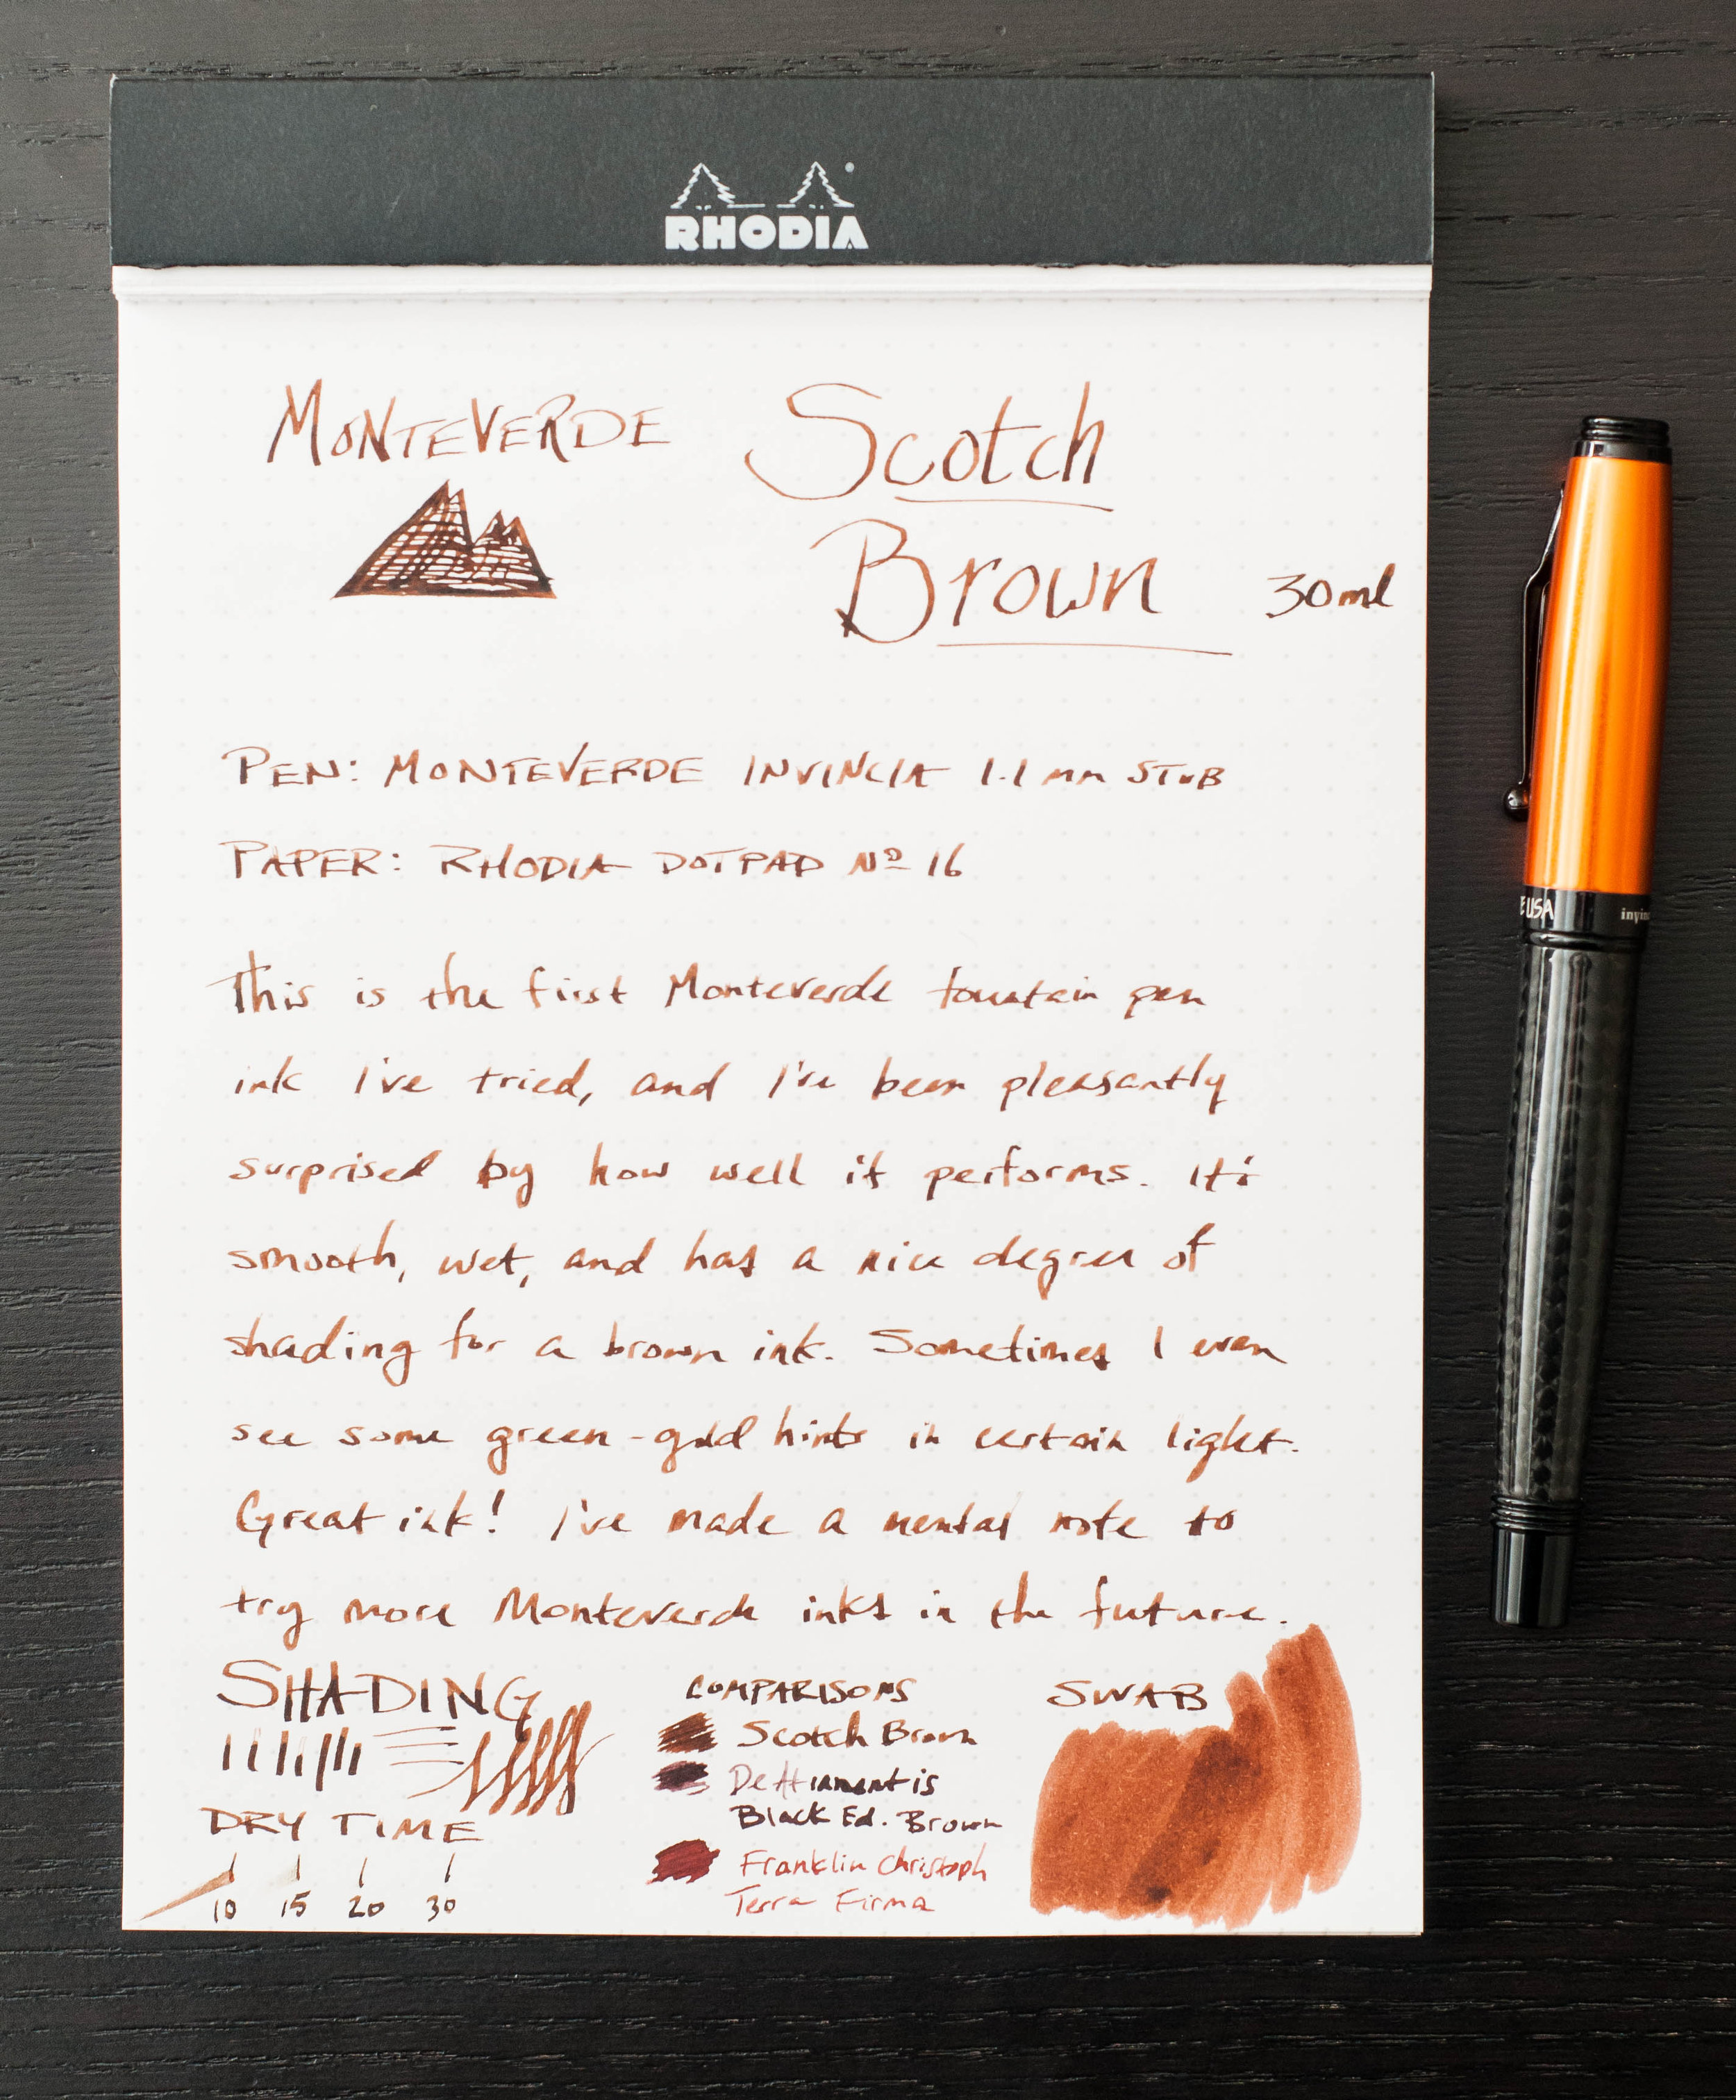 RHODIA
MONTEVERDE Scotch
Brown 30ml
PEN: MONTEVERDE INVINCIA 1.1mm STUB
PAPER: RHODIA DOTPAD Nº 16
This is the first Monteverde fountain pen
ink I've tried, and I've been pleasantly
surprised by how well it performs. It's
smooth, wet, and has a nice degree of
shading for a brown ink. Sometimes I even
see some green-gold hints in certain light.
Great ink! I've made a mental note to
try more Monteverde inks in the future.
SHADING
DRY TIME
10 15 20 30
COMPARISONS
Scotch Brown
De Atramentis
Black Ed. Brown
Franklin Christoph
Terra Firma
SWAB
USA